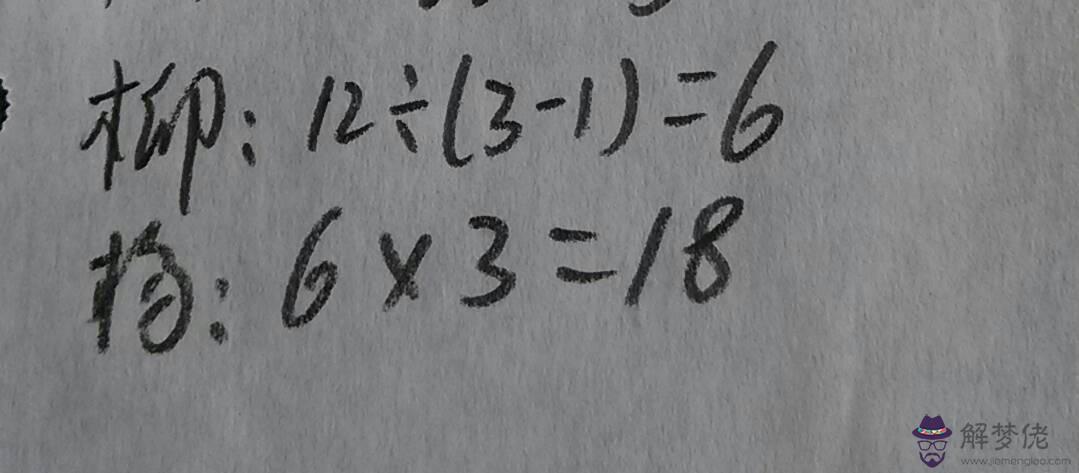 柳：12÷(3-1)=6
杨：6×3=18
解梦佬
www.jiemenglao.com